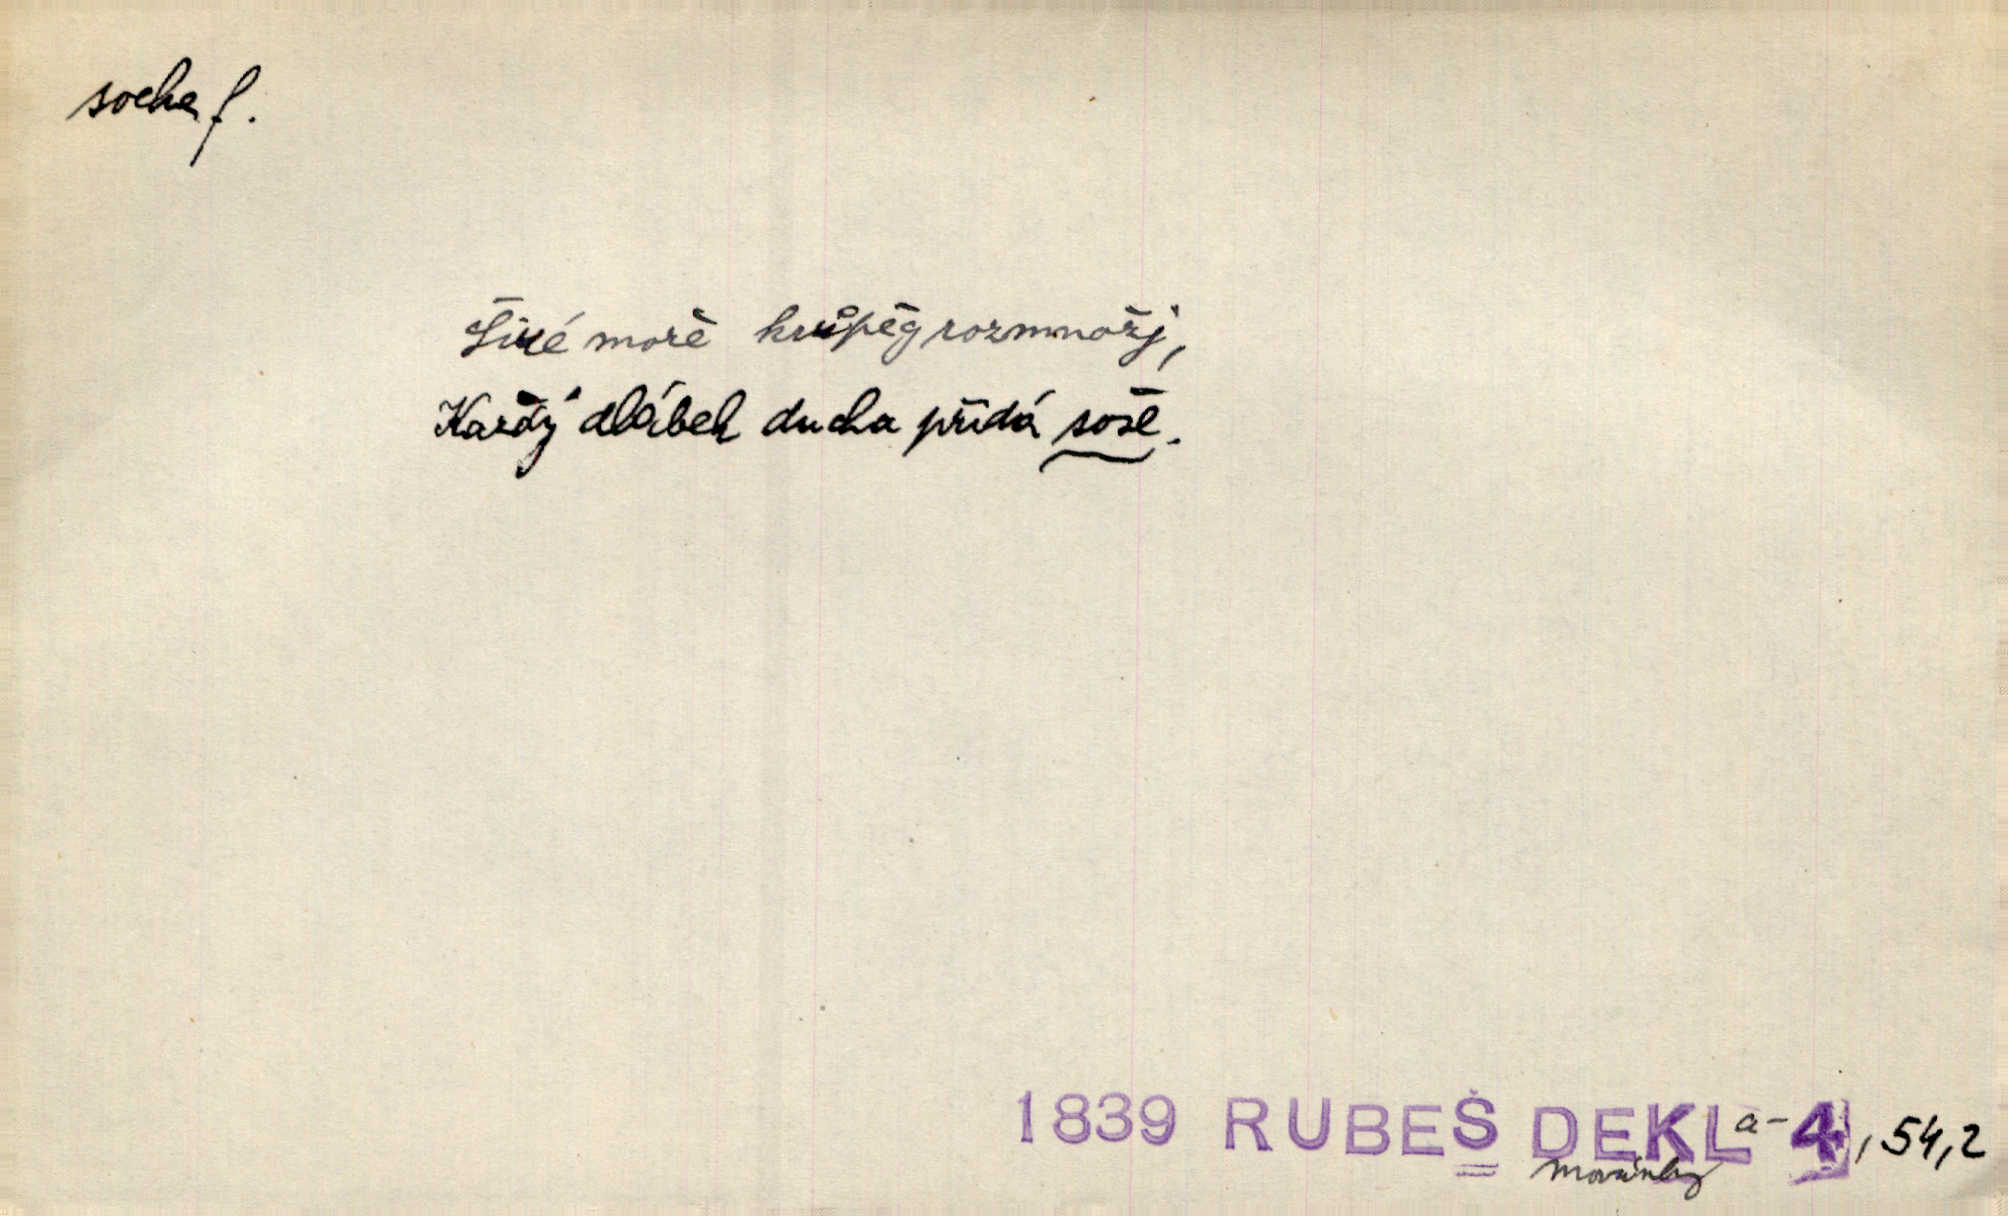 socha f.
Širé moře krůpěg rozmnožj,
Každý dlábek ducha přidá soše.
1839 RUBEŠ DEKL a- 4, 54,2